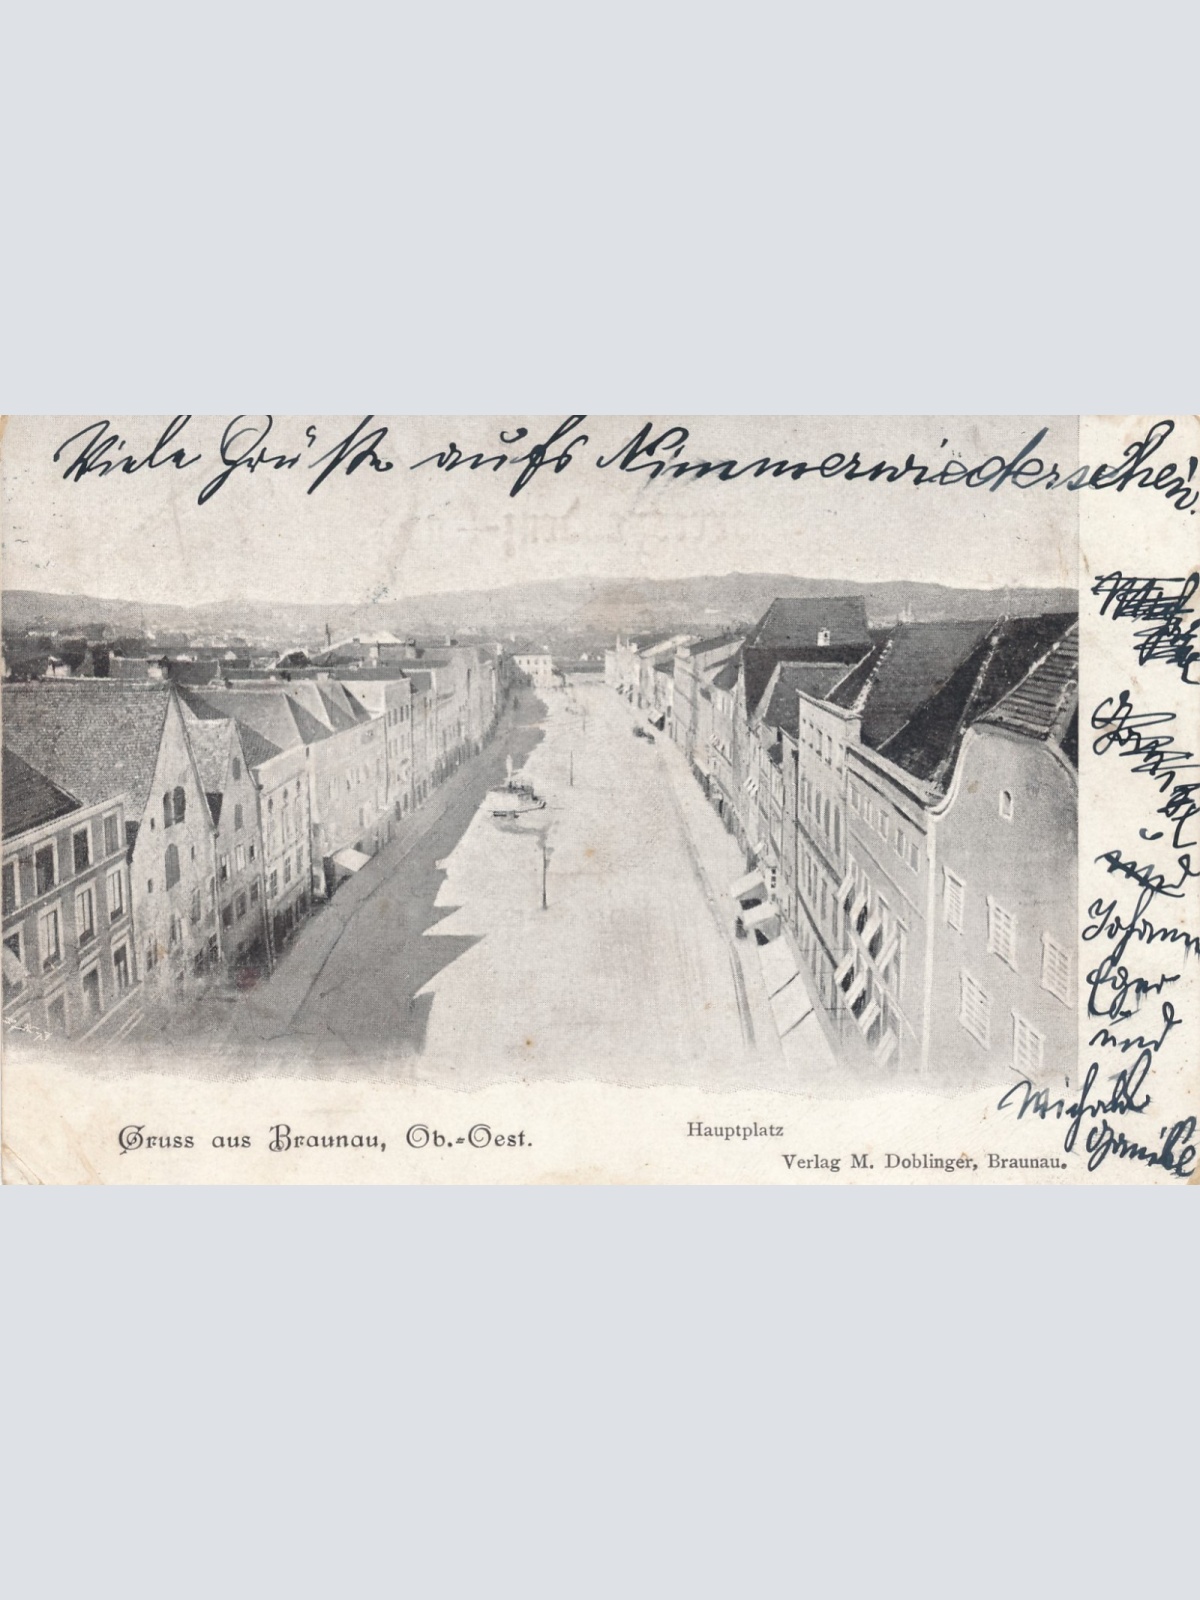 Viele Grüße aufs Nimmerwiedersehen.
und
Johann
Eger
und
Gruss aus Braunau, Ob.-Oest.
Hauptplatz
Verlag M. Doblinger, Braunau.